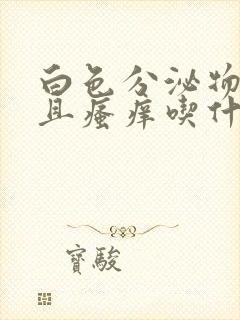 白色分泌物
且瘙痒喫什
寳駿